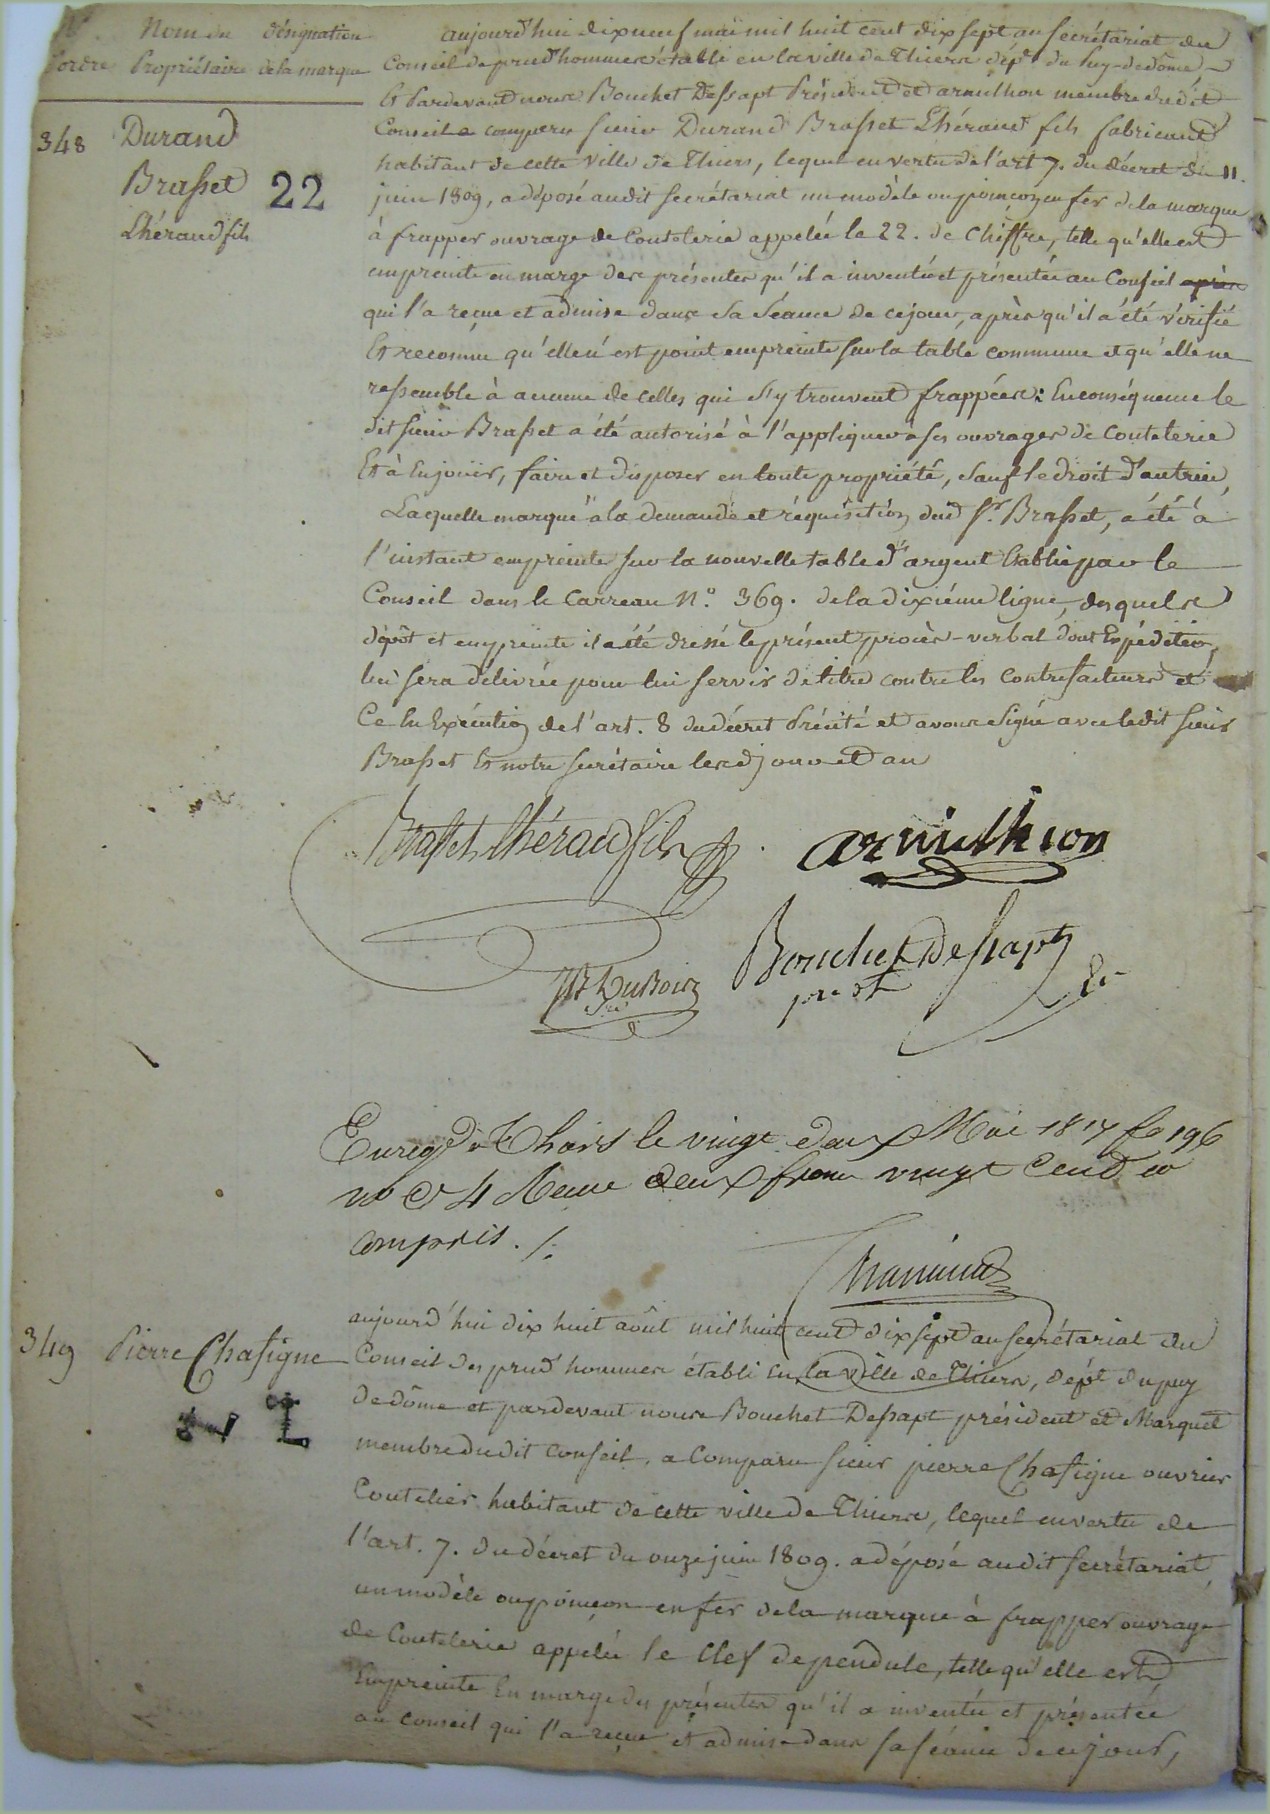 N° Nom du désignation
d'ordre Propriétaire de la marque
348 Durand
Brasset 22
Lhéraud fils
aujourd'hui dix neuf mai mil huit cent dix sept au secrétariat du
Conseil de prud'hommes établi en la ville de Thiers dépt du Puy-de-dôme
Et Pardevant nous Bouchet Dessapt Président et armilhon membre dudit
Conseil a comparu sieur Durand Brasset Lhéraud fils fabricant
habitant de cette ville de Thiers, lequel en vertu de l'art 7. du décret du 11.
juin 1809, a déposé audit secrétariat un modèle ou poinçon en fer de la marque
à frapper ouvrage de Coutelerie appelée le 22. de Chiffre, telle qu'elle est
empreinte en marge des présentes qu'il a inventée et présentée au Conseil après
qui l'a reçue et admise dans sa séance de ce jour, après qu'il a été vérifié
Et reconnu qu'elle n'est point empreinte sur la table commune et qu'elle ne
ressemble à aucune de celles qui s'y trouvent frappées: En conséquence le
dit sieur Brasset a été autorisé à l'appliquer à ses ouvrages de Coutelerie
Et à En jouir, faire et disposer en toute propriété, sauf le droit d'autrui,
Laquelle marque à la demande et réquisition dud Sr. Brasset, a été à
l'instant empreinte sur la nouvelle table d'argent Etablie par le
Conseil dans le Carreau N° 369. de la dixième ligne, desquels
dépôt et empreinte il a été dressé le présent procès-verbal dont Expédition
lui sera délivrée pour lui servir de titre contre les contrefacteurs et
Ce En Exécution de l'art. 8 du décret Précité et avons signé avec ledit sieur
Brasset Et notre secrétaire lesd jour et an
Brasset Lhéraud fils armilhon
Bouchet Dessapt
JB Dubois prest
sre
Enregé à Thiers le vingt deux Mai 1817 fo 196
vo Ce 4 Reçu deux francs vingt cent
compris ./.
349 Pierre Chasigne
aujourd'hui dix huit août mil huit cent dix sept au secrétariat du
Conseil des prud'hommes établi En la Ville de Thiers, dépt du puy
de dôme et pardevant nous Bouchet Dessapt président et Marquet
membre dudit conseil, a Comparu sieur pierre Chasigne ouvrier
Coutelier habitant de cette ville de Thiers, lequel en vertu de
l'art. 7. du décret du onze juin 1809. a déposé audit secrétariat
un modèle ou poinçon en fer de la marque à frapper ouvrage
de Coutelerie appelée le Clef de pendule, telle qu'elle est
Empreinte En marge des présentes qu'il a inventée et présentée
au conseil qui l'a reçue et admise dans sa séance de ce jour,